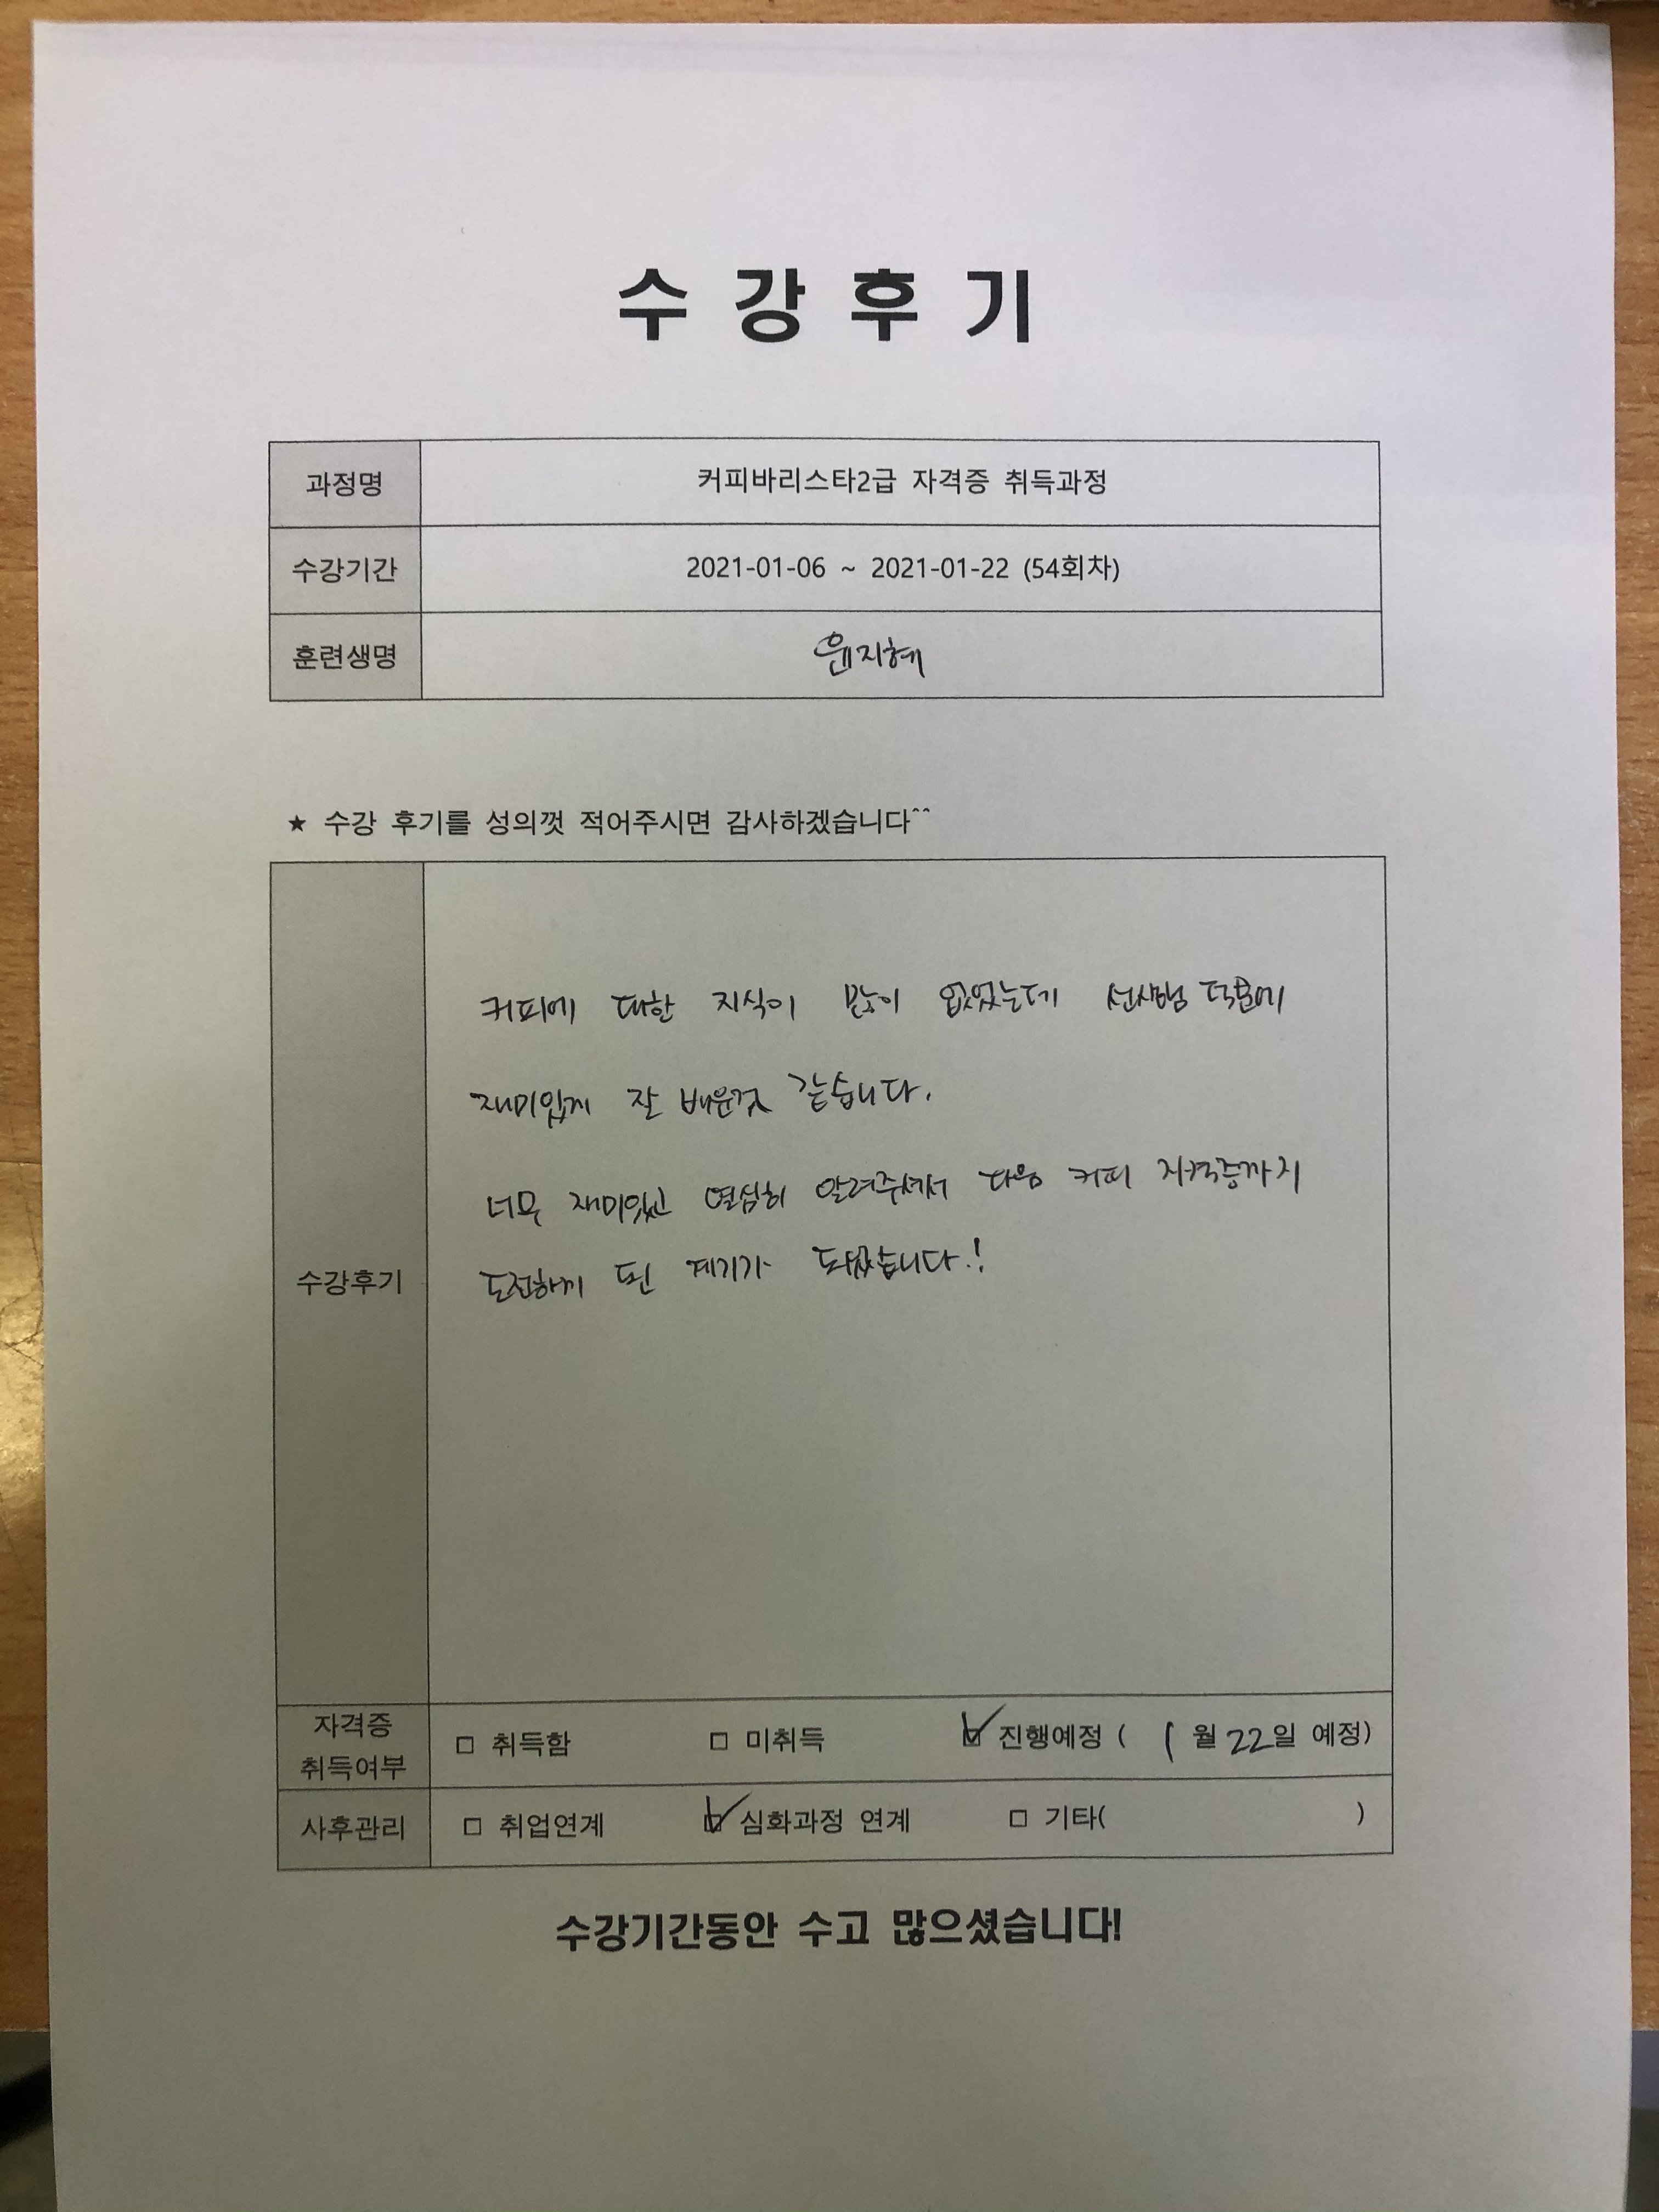 수 강 후 기
과정명 커피바리스타2급 자격증 취득과정
수강기간 2021-01-06 ~ 2021-01-22 (54회차)
훈련생명 윤지혜
★ 수강 후기를 성의껏 적어주시면 감사하겠습니다^^
커피에 대한 지식이 많이 없었는데 선생님 덕분에
재미있게 잘 배운것 같습니다.
너무 재미있고 열심히 알려주셔서 다음 커피 자격증까지
수강후기
도전하게 된 계기가 되었습니다!
자격증
취득여부
□ 취득함 □ 미취득 ☑ 진행예정 ( 1 월 22일 예정)
사후관리 □ 취업연계 ☑ 심화과정 연계 □ 기타( )
수강기간동안 수고 많으셨습니다!